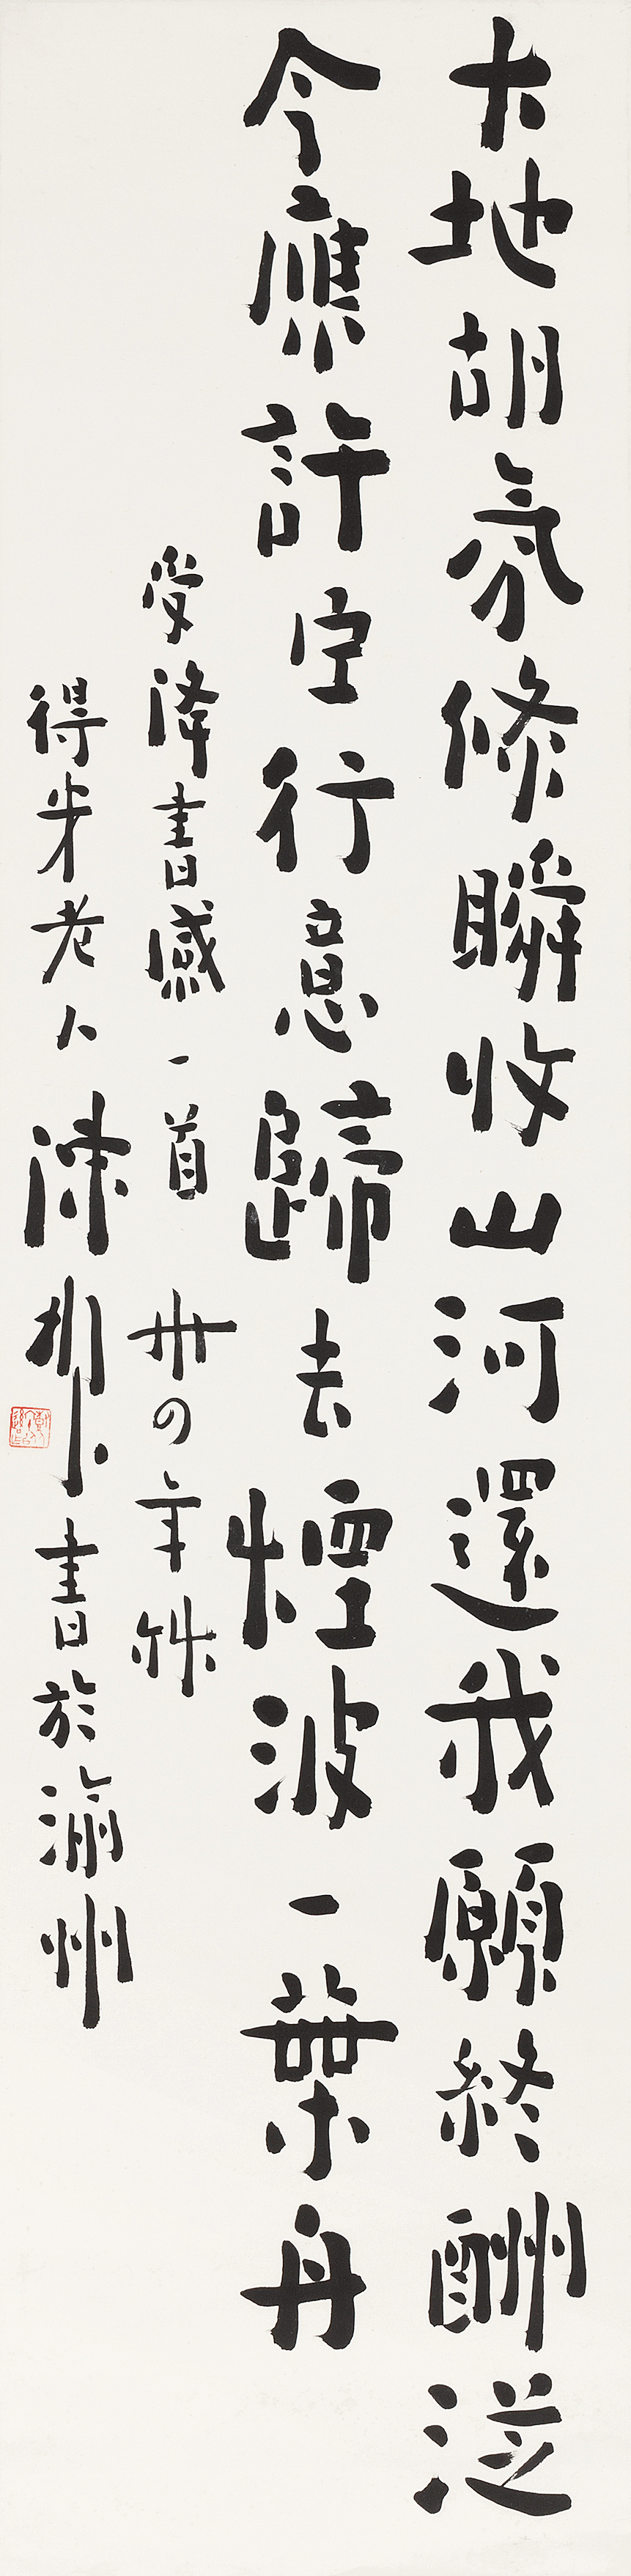 大地胡氛倏瞬收山河還我願終酬從
今應許空行意歸去煙波一葉舟
受降書感一首 卅四年秋
得半老人陳 書於渝州